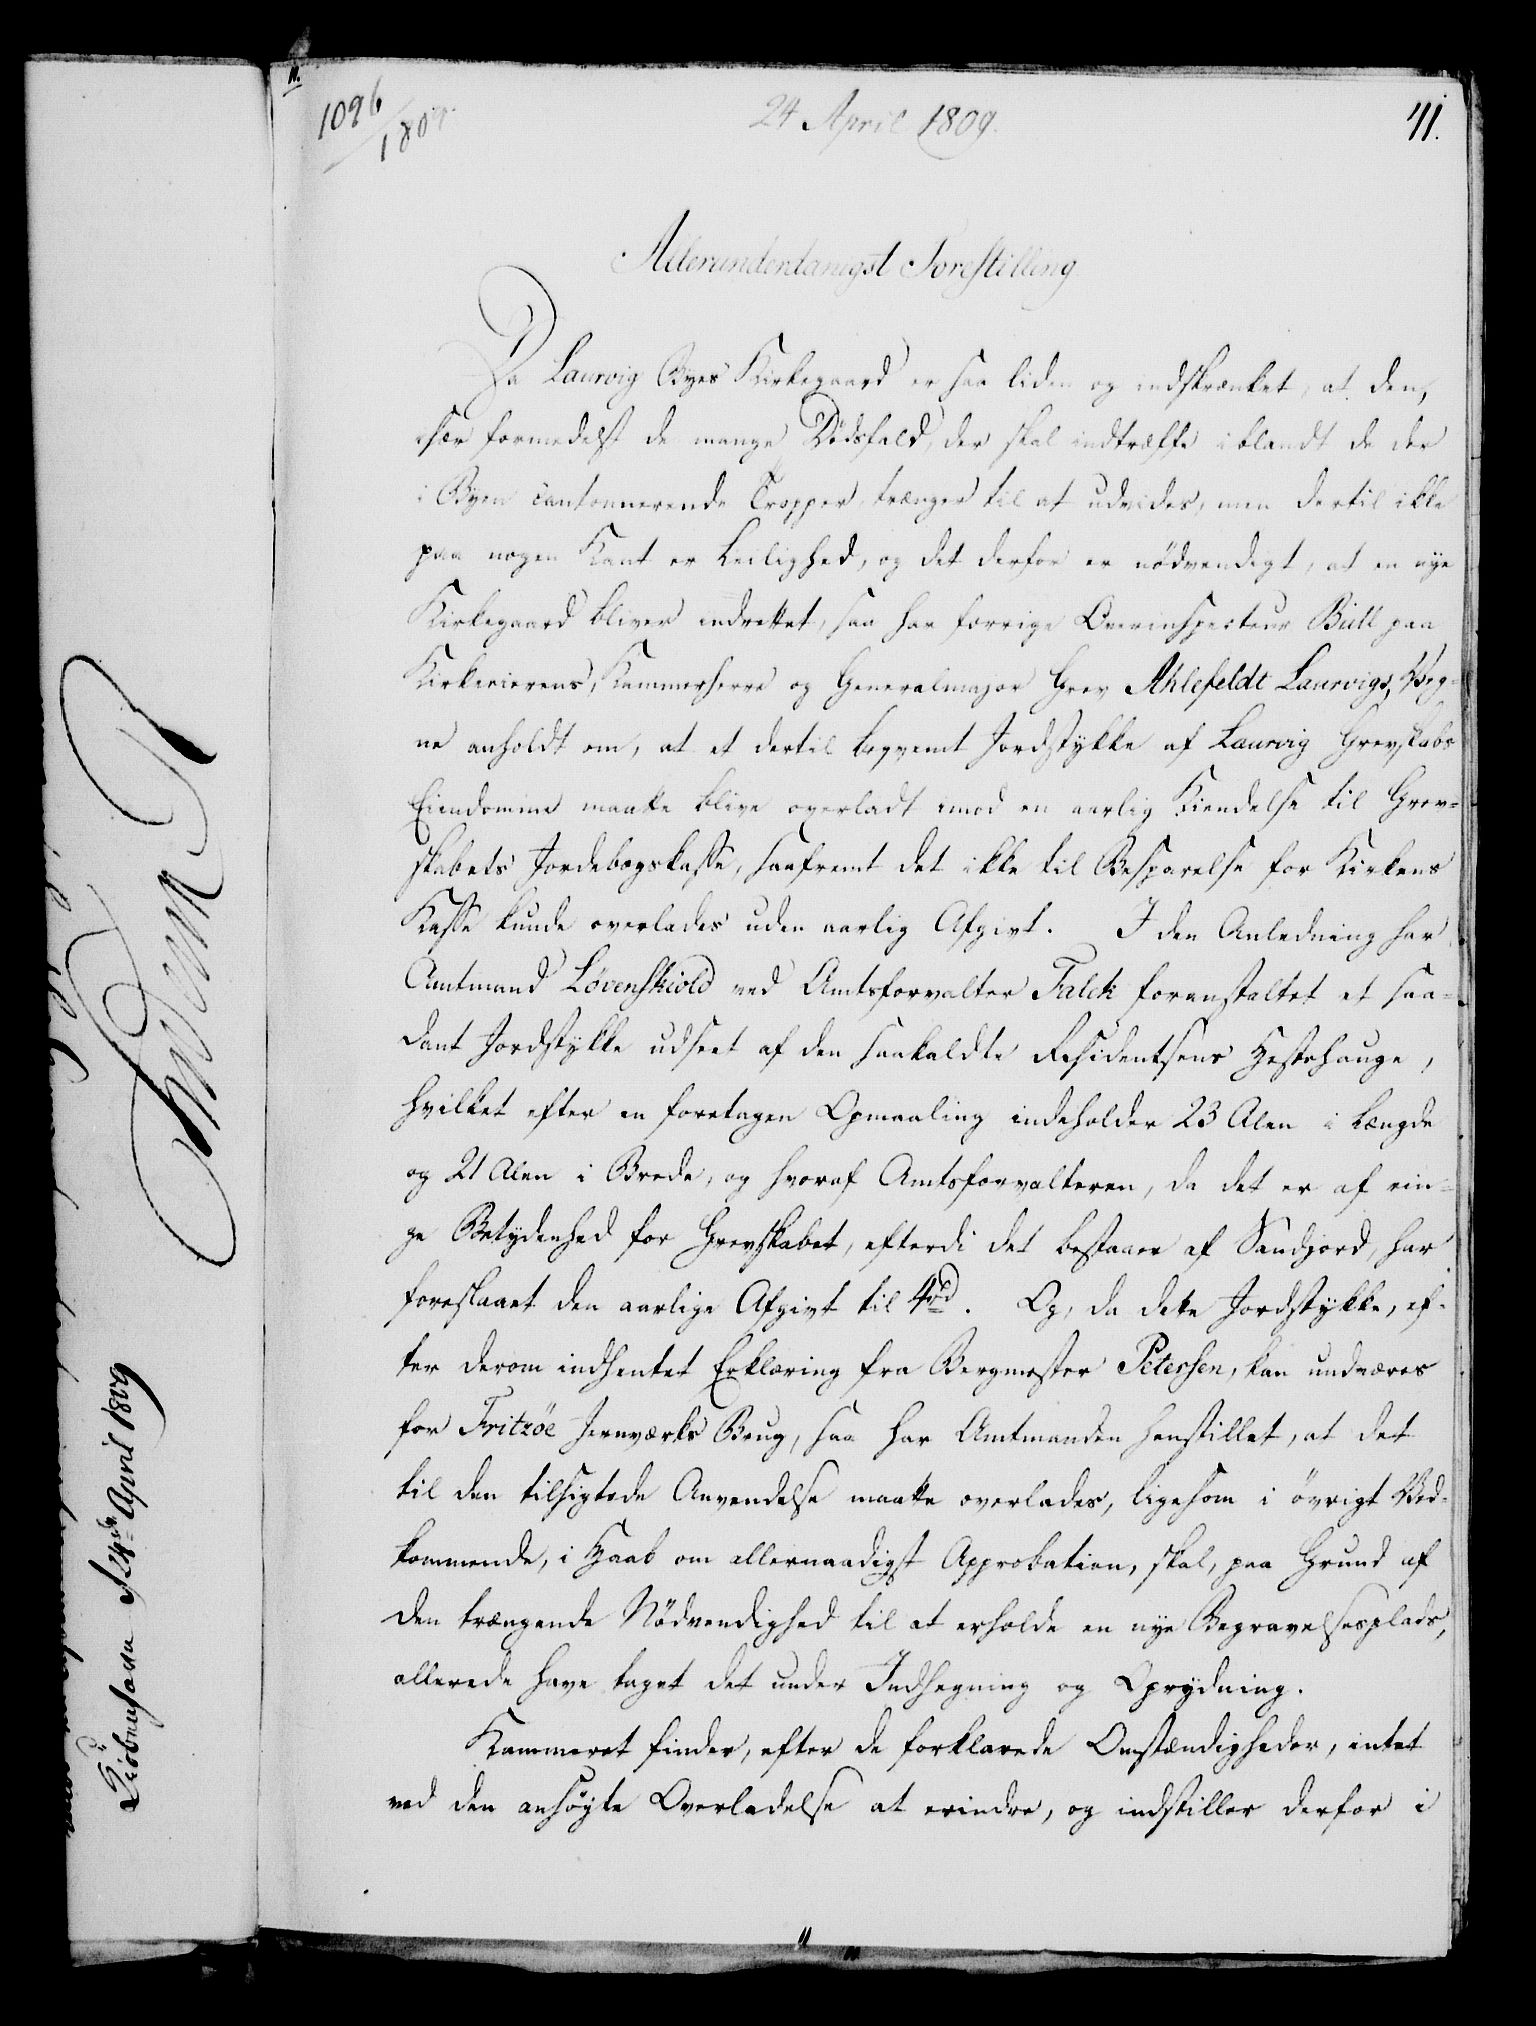 1096
1809.
24 April 1809.
41.
Allerunderdanigst Forestilling
Da Laurvig Byes Kirkegaard er saa liden og indskrænket, at den,
især formedelst de mange Dødsfald, der skal indtræffe iblandt de der
i Byen cantonnerende Tropper, trænger til at udvides, men dertil ikke
paa nogen Kant er Leilighed, og det derfor er nödvendigt, at en nye
Kirkegaard bliver indrettet, saa har forrige Overinspecteur Bull paa
Kirkeeierens, Kammerherre og Generalmajor Grev Ahlefeldt Laurvigs, Veg-
ne anholdt om, at et dertil beqvemt Jordstykke af Laurvig Grevskabs
Eiendomme maatte blive overladt imod en aarlig Kiendelse til Grev-
skabets Jordebogskasse, saafremt det ikke til Besparelse for Kirkens
Kasse kunde overlades uden aarlig Afgivt. I den Anledning har
Amtmand Lövenskiold ved Amtsforvalter Falck foranstaltet et saa-
dant Jordstykke udseet af den saakaldte Residentsens Hestehauge,
hvilket efter en foretagen Opmaaling indeholder 23 Alen i Længde
og 21 Alen i Brede, og hvoraf Amtsforvalteren, da det er af rin-
ge Betydenhed for Grevskabet, efterdi det bestaaer af Sandjord, har
foreslaaet den aarlige Afgivt til 4 rd. Og, da dette Jordstykke, ef-
ter derom indhentet Erklæring fra Bergmester Petersen, kan undværes
for Fritzöe Jernværks Brug, saa har Amtmanden henstillet, at det
til den tilsigtede Anvendelse maatte overlades, ligesom i övrigt Ved-
kommende, i Haab om allernaadigst Approbation, skal, paa Grund af
den trængende Nödvendighed til at erholde en nye Begravelsesplads,
allerede have taget det under Indhegning og Oprydning.
Kammeret finder, efter de forklarede Omstændigheder, intet
ved den ansögte Overladelse at erindre, og indstiller derfor i
Kiöbenhavn d 24de April 1809